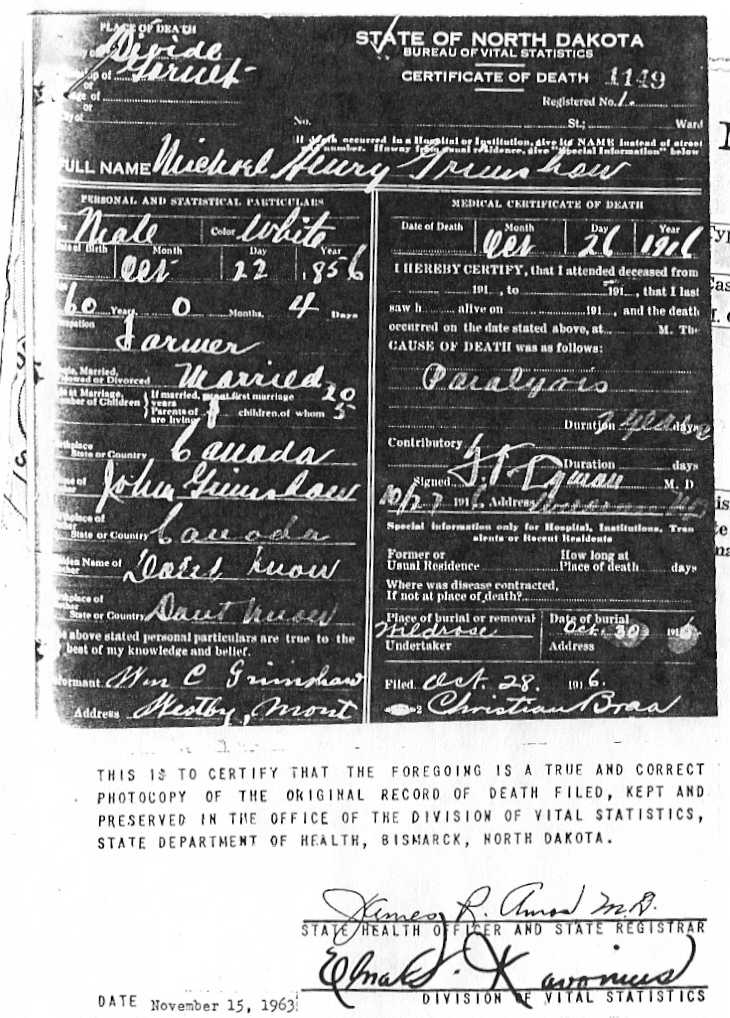 PLACE OF DEATH
STATE OF NORTH DAKOTA
BUREAU OF VITAL STATISTICS
Divide
CERTIFICATE OF DEATH 1149
of Garnet
or
of
or
of
Registered No. 1.
No. St.; Ward
If death occurred in a Hospital or Institution, give its NAME instead of street
number. If away from usual residence, give "Special Information" below
FULL NAME Michael Henry Grimshaw
PERSONAL AND STATISTICAL PARTICULARS
Male Color White
Date of Birth Month Day Year
Oct 22 1856
60 Years, 0 Months, 4 Days
Farmer
Married,
or Divorced Married
at Marriage, If married, at first marriage 20
of Children years
Parents of children, of whom 5
are living
State or Country Canada
of John Grimshaw
of
State or Country Canada
Name of Dont know
of
State or Country Dont know
above stated personal particulars are true to the
best of my knowledge and belief.
Wm C Grimshaw
Address Westby, Mont
MEDICAL CERTIFICATE OF DEATH
Date of Death Month Day Year
Oct 26 1916
I HEREBY CERTIFY, that I attended deceased from
191 , to 191 , that I last
saw h alive on 191 , and the death
occurred on the date stated above, at M. The
CAUSE OF DEATH was as follows:
Paralysis
Duration 2 years days
Contributory
Duration days
Signed M. D.
10/27 1916 Address
Special information only for Hospital, Institutions, Tran
sients or Recent Residents
Former or How long at
Usual Residence Place of death days
Where was disease contracted,
If not at place of death?
Place of burial or removal Date of burial
Wildrose Oct. 30 1916
Undertaker Address
Filed Oct. 28. 1916.
Christian Braa
THIS IS TO CERTIFY THAT THE FOREGOING IS A TRUE AND CORRECT
PHOTOCOPY OF THE ORIGINAL RECORD OF DEATH FILED, KEPT AND
PRESERVED IN THE OFFICE OF THE DIVISION OF VITAL STATISTICS,
STATE DEPARTMENT OF HEALTH, BISMARCK, NORTH DAKOTA.
James R. Amos M.D.
STATE HEALTH OFFICER AND STATE REGISTRAR
Kavonius
DIVISION OF VITAL STATISTICS
DATE November 15, 1963